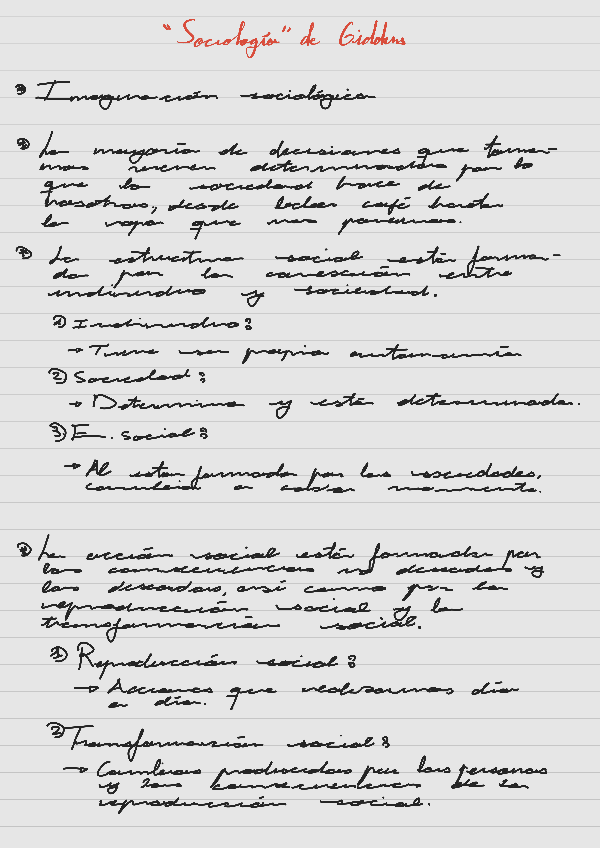 "Sociología" de Giddens
Imaginación sociológica
La mayoría de decisiones que tome-
mos vienen determinadas por lo
que la sociedad hace de
nosotros, desde beber café hasta
la ropa que nos ponemos.
La estructura social está forma-
da por la conexión entre
individuo y sociedad.
① Individuo:
→ Tiene su propia autonomía
② Sociedad:
→ Determina y está determinada.
③ E. social:
→ Al estar formada por las sociedades,
cambia a cada momento.
La acción social está formada por
las consecuencias no deseadas y
las deseadas, así como por la
reproducción social y la
transformación social.
① Reproducción social:
→ Acciones que realizamos día
a día.
② Transformación social:
→ Cambios producidos por las personas
y sus consecuencias de la
reproducción social.